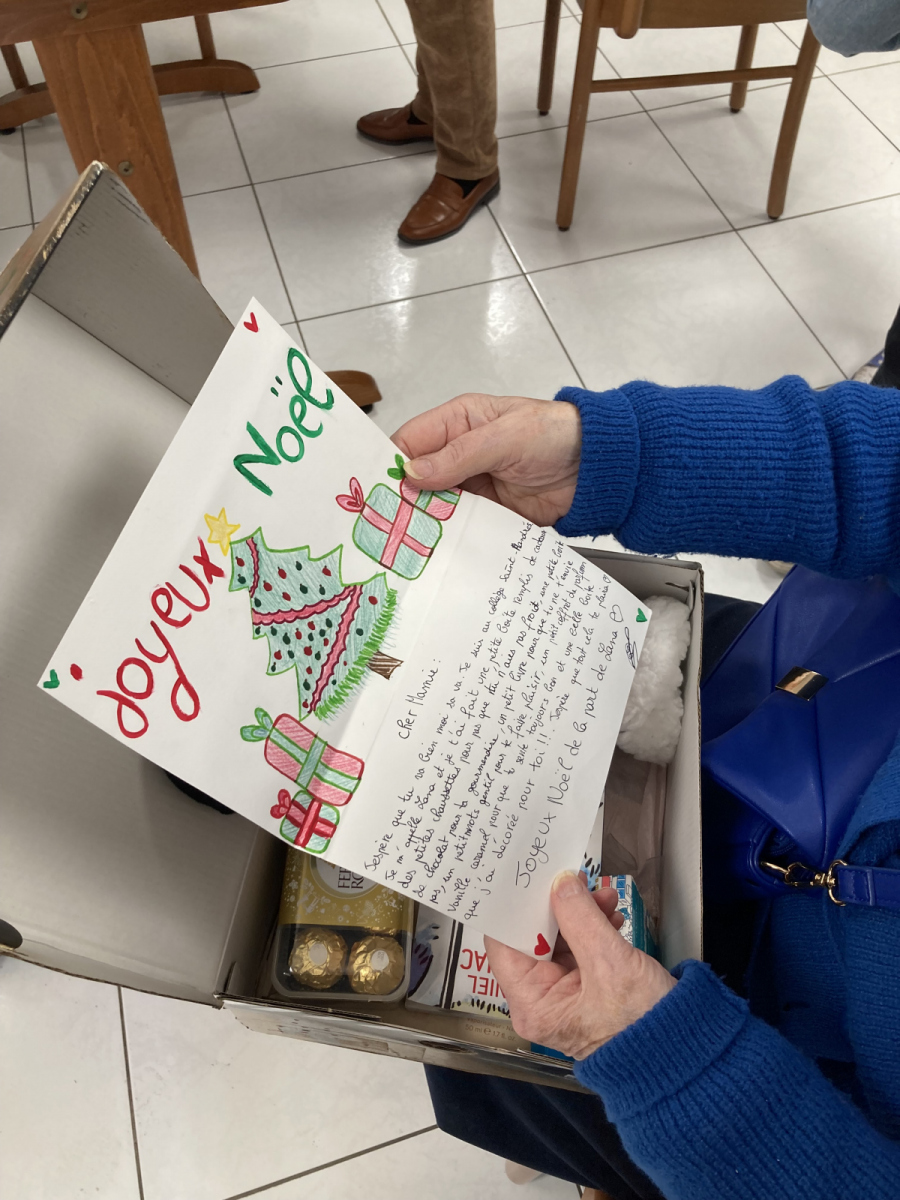 Joyeux Noël
Cher Mamie :
J'espère que tu va bien moi sa va. Je suis au collège Saint-André
Je m'appelle Lana et je t'ai fait une petite boîte remplis de cadeau
des petites chaussettes pour pas que tu n'aies pas froid, une petit boit
de chocolat pour ta gourmandise, un petit livre pour que tu ne t'ennuie
pas, un petit mots gentil pour te faire plaisir, un petit coffret de parfum
vanille caramel pour que tu sente toujours bon et une belle boite
que j'ai décorée pour toi !! J'espère que tout cela te plaira
Joyeux Noël de la part de Lana
FER
RO
NIEL
NAC
50 ml